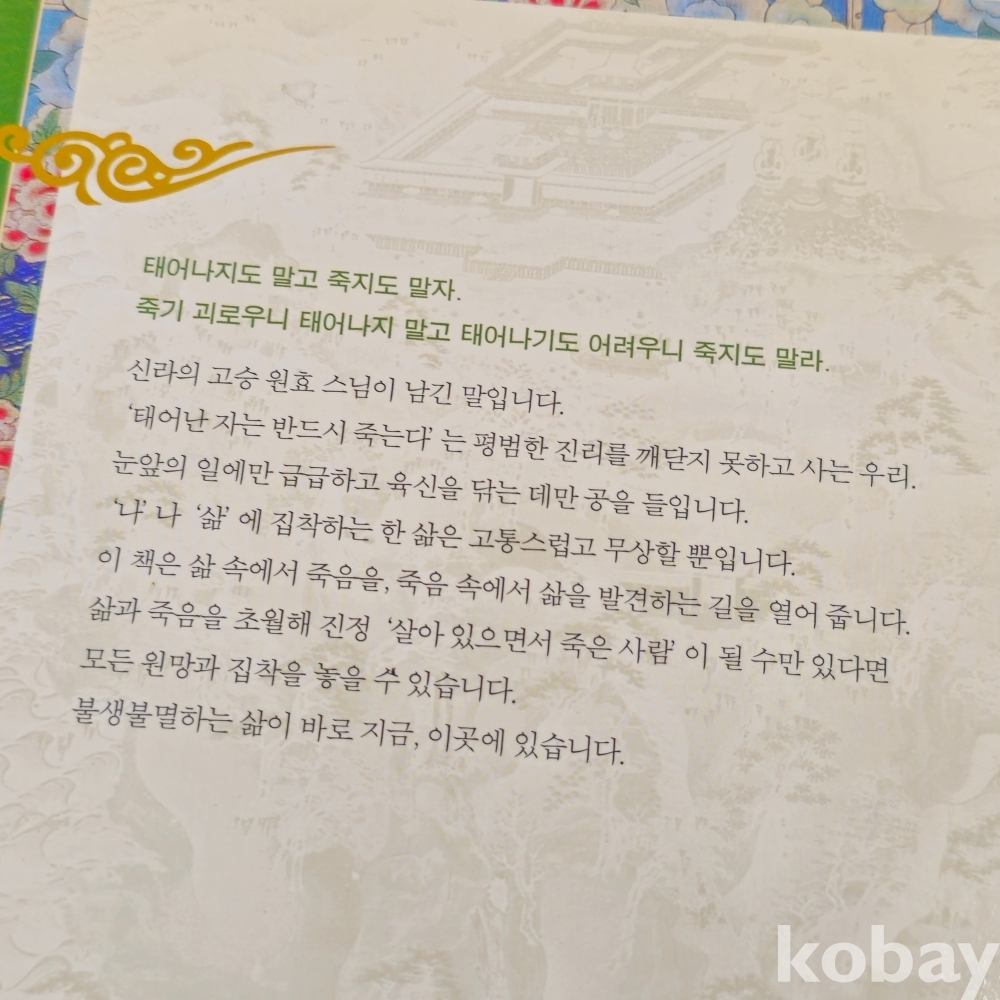 태어나지도 말고 죽지도 말자.
죽기 괴로우니 태어나지 말고 태어나기도 어려우니 죽지도 말라.
신라의 고승 원효 스님이 남긴 말입니다.
‘태어난 자는 반드시 죽는다’ 는 평범한 진리를 깨닫지 못하고 사는 우리.
눈앞의 일에만 급급하고 육신을 닦는 데만 공을 들입니다.
‘나’ 나 ‘삶’ 에 집착하는 한 삶은 고통스럽고 무상할 뿐입니다.
이 책은 삶 속에서 죽음을, 죽음 속에서 삶을 발견하는 길을 열어 줍니다.
삶과 죽음을 초월해 진정 ‘살아 있으면서 죽은 사람’ 이 될 수만 있다면
모든 원망과 집착을 놓을 수 있습니다.
불생불멸하는 삶이 바로 지금, 이곳에 있습니다.
kobay